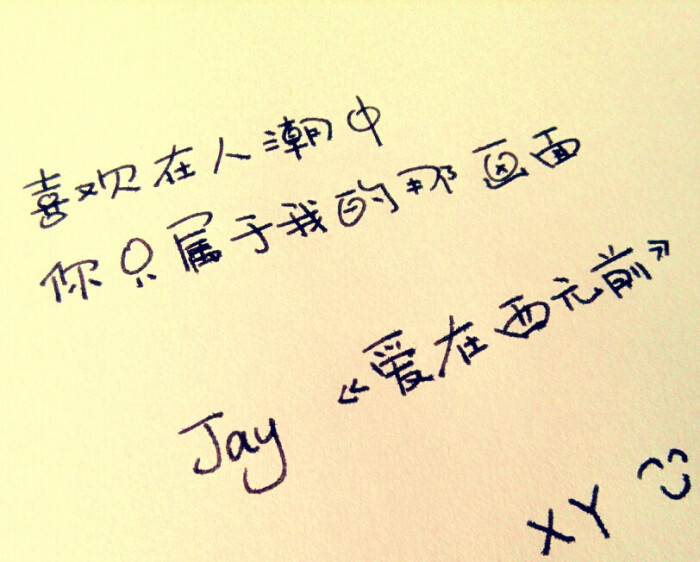 喜欢在人潮中
你只属于我的那画面
Jay 《爱在西元前》
XY